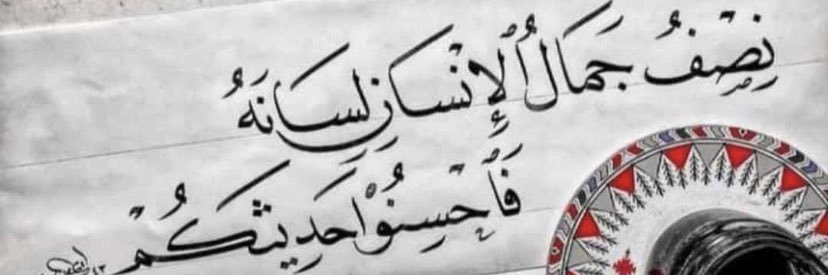 نِصْفُ جَمَالُ الْإِنْسَانِ لِسَانَهُ
فَأَحْسِنُوْا حَدِيثكُمْ